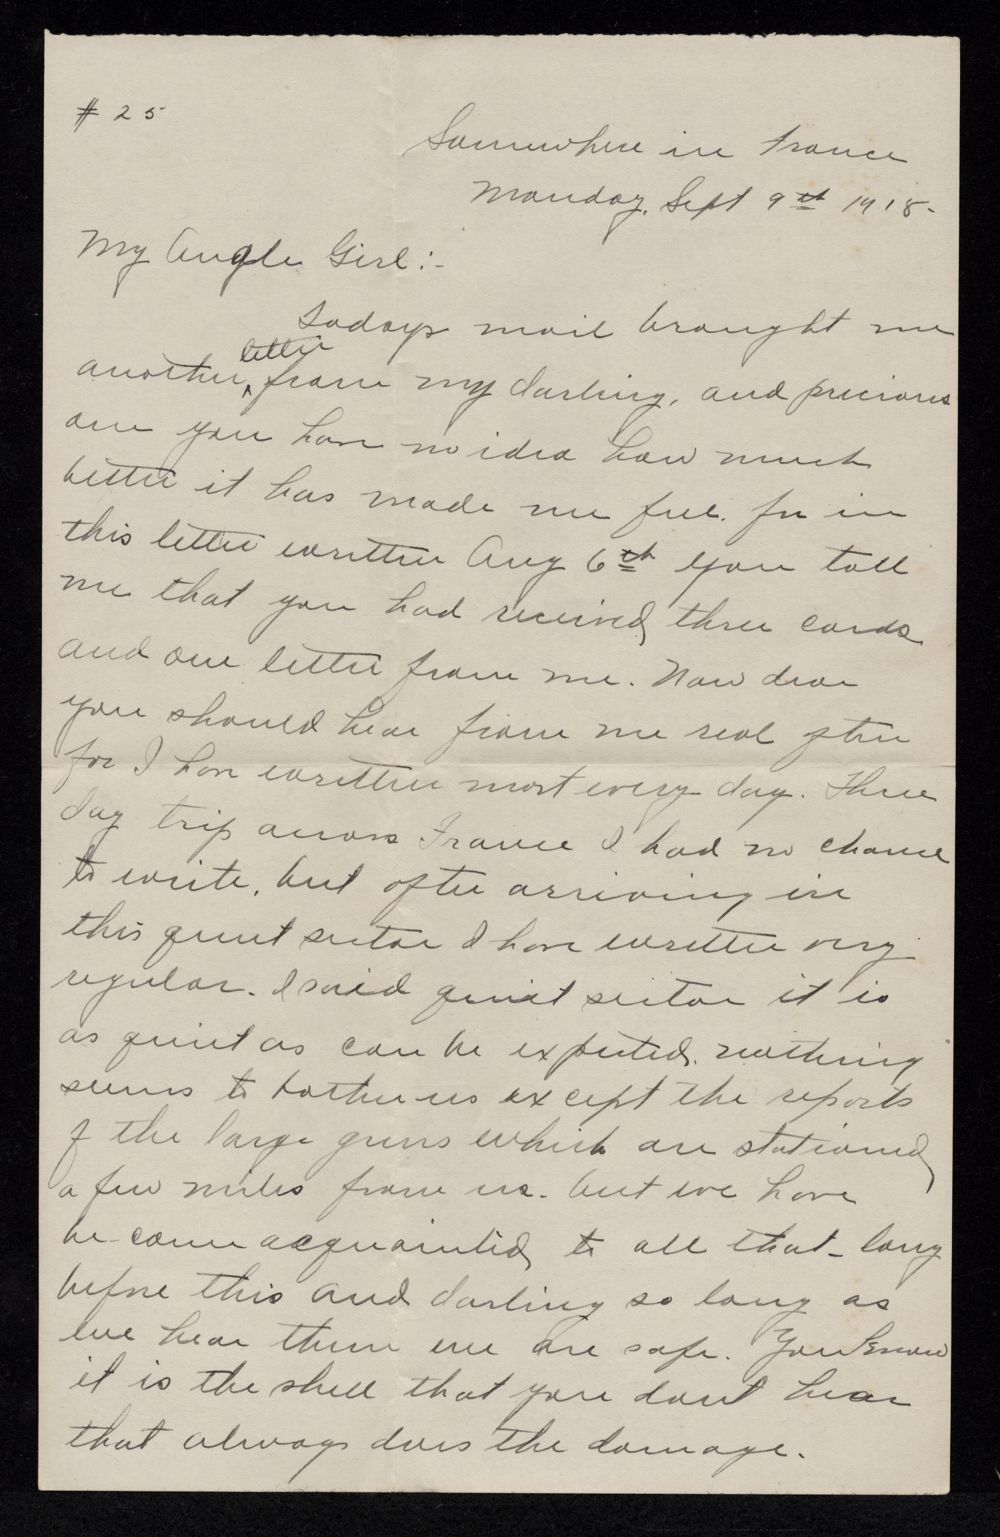 # 25
Somewhere in France
Monday, Sept 9th 1918-
My Angle Girl:-
Todays mail brought me
another letter from my darling, and precious
one you have no idea how much
better it has made me feel. for in
this letter written Aug 6th you tell
me that you had received three cards
and one letter from me. Now dear
you should hear from me real often
for I have written most every day. Three
day trip across France I had no chance
to write, but after arriving in
this quiet sector I have written very
regular. I said quiet sector it is
as quiet as can be expected. nothing
seems to bother us except the reports
of the large guns which are stationed
a few miles from us. but we have
be-come acquainted to all that - long
before this and darling so long as
we hear them we are safe. You know
it is the shell that you dont hear
that always does the damage.